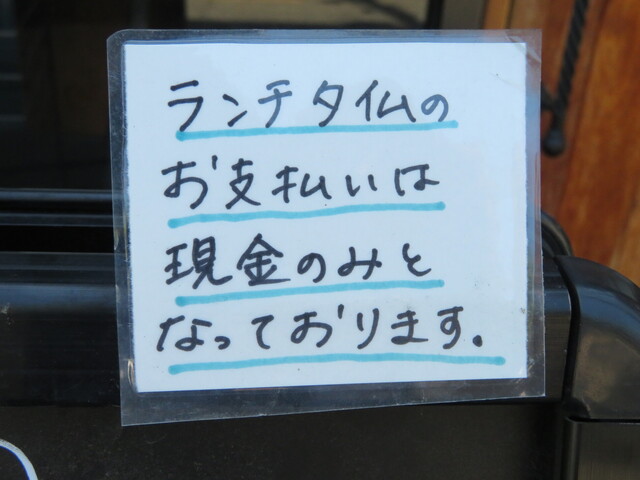 ランチタイムの
お支払いは
現金のみと
なっております。